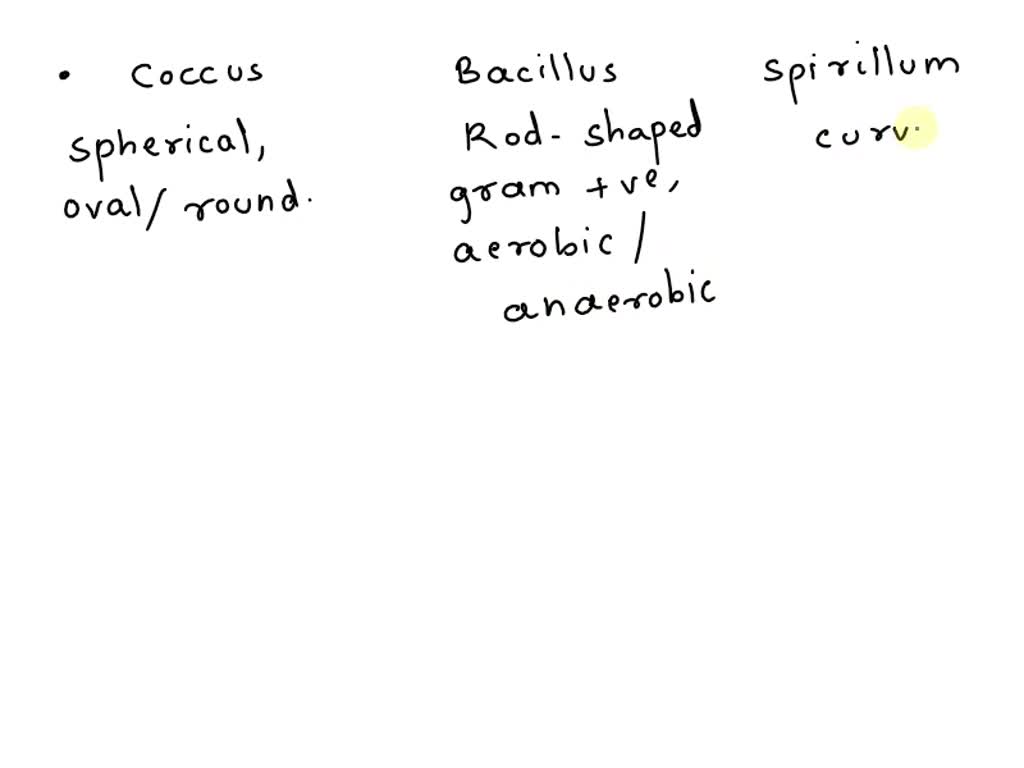 • Coccus
spherical,
oval/ round.
Bacillus
Rod- shaped
gram +ve,
aerobic /
anaerobic
Spirillum
curv